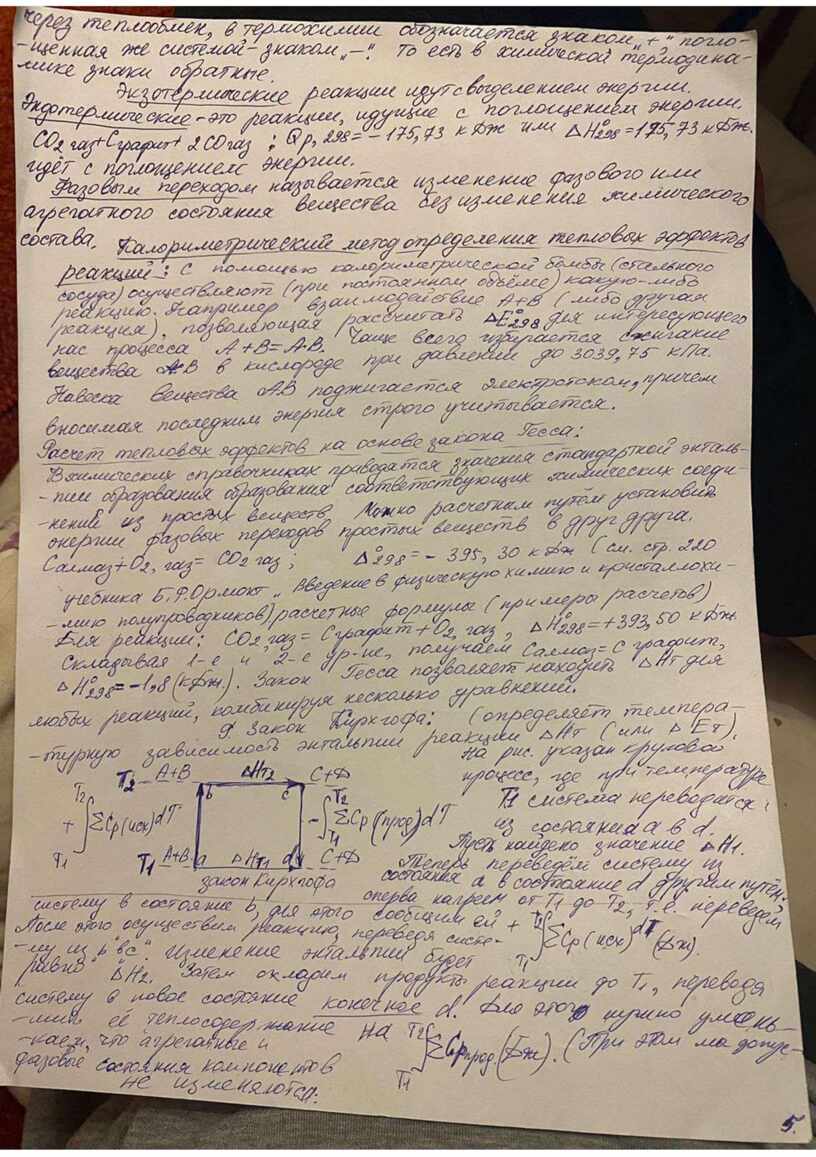 через теплообмен, в термохимии обозначается знаком „+" погло-
-щенная же системой - знаком „-". То есть в химической термодина-
мике знаки обратные.
Экзотермические реакции идут с выделением энергии.
Эндотермические - это реакции, идущие с поглощением энергии.
CO2 газ + C графит + 2CO газ ; Qp, 298 = - 175,73 кДж или ΔH°298 = 175,73 кДж.
идёт с поглощением энергии.
Фазовым переходом называется изменение фазового или
агрегатного состояния вещества без изменения химического
состава. Калориметрический метод определения тепловых эффектов
реакций: с помощью калориметрической бомбы (стального
сосуда) осуществляют (при постоянном объёме) какую-либо
реакцию. Например взаимодействие A+B (либо другая
реакция), позволяющая рассчитать ΔE°298 для интересующего
нас процесса A+B=A·B. Чаще всего избирается сжигание
вещества AB в кислороде при давлении до 3039,75 кПа.
Навеска вещества AB поджигается электротоком, причем
вносимая последним энергия строго учитывается.
Расчет тепловых эффектов на основе закона Гесса:
В химических справочниках приводятся значения стандартной энталь-
-пии образования образования соответствующих химических соеди-
-нений из простых веществ. Можно расчетным путем установить
энергии фазовых переходов простых веществ в друг друга.
C алмаз + O2, газ = CO2 газ ; Δ°298 = - 395,30 кДж (см. стр. 220
учебника Б.Ф. Ормонт „Введение в физическую химию и кристаллохи-
-мию полупроводников) расчетные формулы (примеры расчетов)
Для реакции: CO2, газ = C графит + O2, газ, ΔH°298 = +393,50 кДж.
Складывая 1-е и 2-е ур-ие, получаем C алмаз = C графит,
ΔH°298 = -1,8 (кДж). Закон Гесса позволяет находить ΔHт для
любых реакций, комбинируя несколько уравнений.
Закон Кирхгофа: (определяет темпера-
-турную зависимость энтальпии реакции ΔHт (или ΔEт).
На рис. указан круговой
процесс, где при температуре
T1 система переводится
из состояния a в d.
Пусть найдено значение ΔH1.
Теперь переведём систему из
состояния a в состояние d другим путём:
сперва нагреем от T1 до T2, т.е. переведём
T2 A+B ΔHT2 C+D
b c
T2
+ ∫ ΣCp(исх) dT
T1
T2
- ∫ ΣCp(прод) dT
T1
T1 A+B a ΔHT1 d C+D
закон Кирхгофа
систему в состояние b, для этого сообщим ей + T2 ∫ T1 ΣCp(исх) dT (Дж).
После этого осуществим реакцию, переведя систе-
-му из „bc". Изменение энтальпии будет
равно ΔH2. Затем охладим продукты реакции до T1, переводя
систему в новое состояние конечное d. Для этого нужно умень-
-шить её теплосодержание на T2 ∫ T1 ΣCp прод. (Дж). (При этом мы допус-
-каем, что агрегатные и
фазовые состояния компонентов
не изменяются.
5.